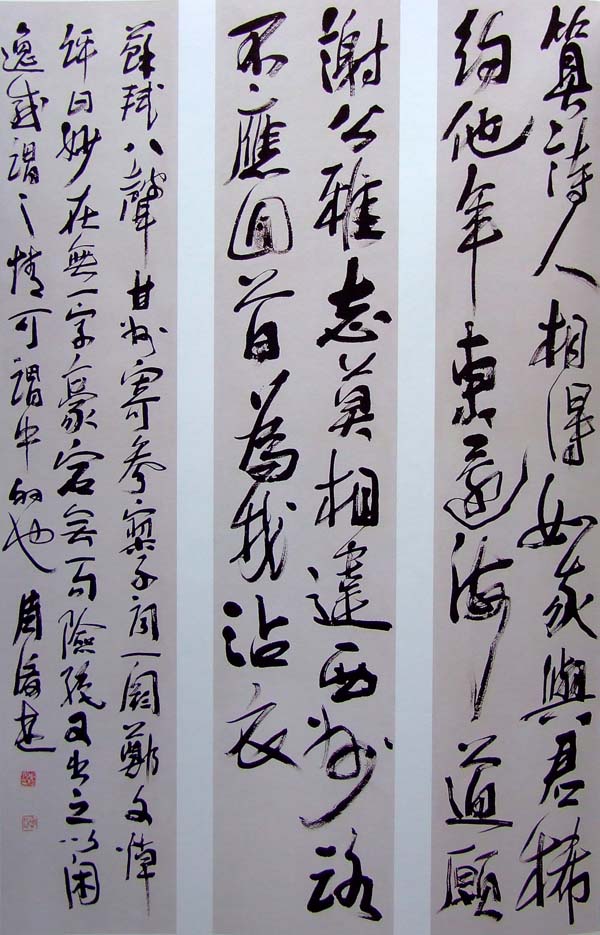 算詩人相得如我與君稀
約他年東還海道願
謝公雅志莫相違西州路
不應回首為我沾衣
蘇軾八聲甘州寄參寥子詞一闋鄭文焯
評曰妙在無一字豪宕無一句險怪又出之以閑
逸感謂之情可謂中的也 周